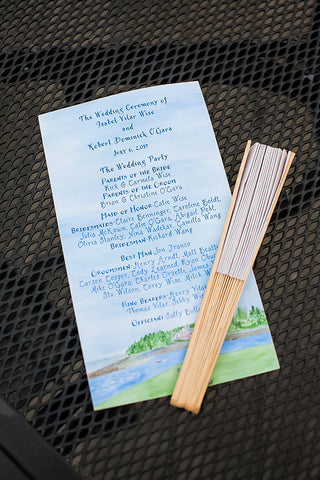 The Wedding Ceremony of
Isabel Vilar Wise
and
Robert Dominick O'Gara
July 6, 2019
The Wedding Party
Parents of the Bride
Rick & Carmela Wise
Parents of the Groom
Brian & Christine O'Gara
Maid of Honor-Catie Wise
Bridesmaids-Claire Benninger, Caroline Beldt,
Julia McKown, Catie O'Gara, Abigail
Olivia Stanley, Nina Wadekar, Camilla Wang
Bridesman-Richard Wang
Best Man Jon Franco
Groomsmen-Henry Arndt, Matt
Carson Cooper, Cody Learned, Ryan
Mike O'Gara, Charles Orsella, James
Stu Wilson, Corey Wise, Mick
Ring Bearers-Henry Vilar
Thomas Vilar, Bobby
Officiant-Sally